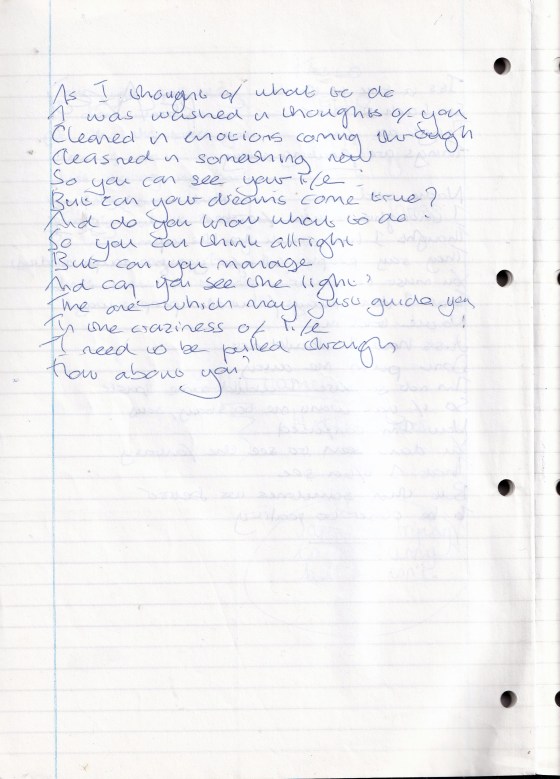 As I thought of what to do
I was washed in thoughts of you
Cleaned in emotions coming through
Cleansed in something new
So you can see your life
But can your dreams come true?
And do you know what to do?
So you can think allright
But can you manage
And can you see the light?
The one which may just guide you
In the craziness of life
I need to be pulled through
How about you?